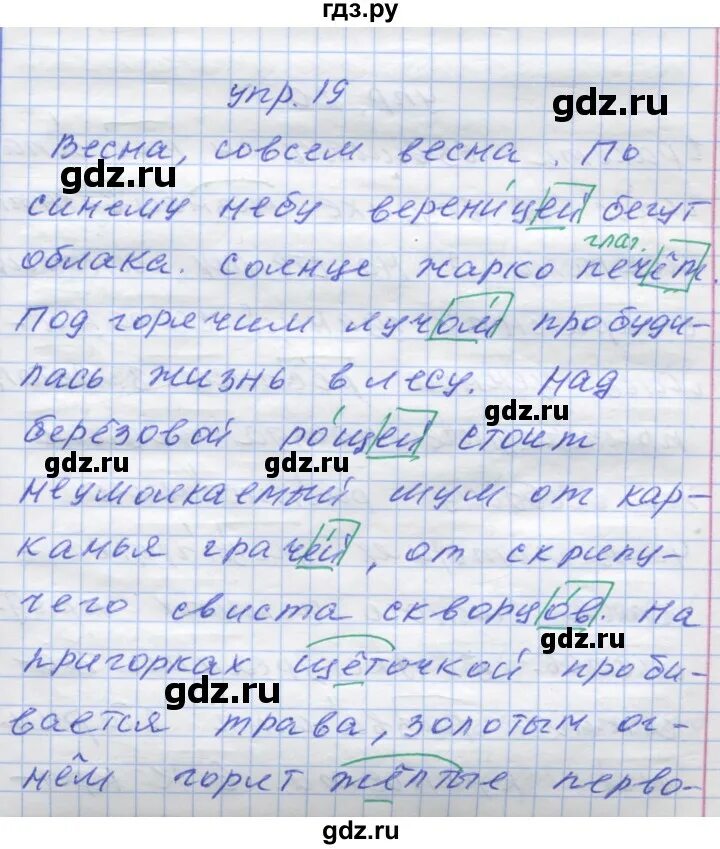 гдз.ру
упр. 19
gdz.ru
Весна, совсем весна. По
gdz.ru
синему небу вереницей бегут
глаг.
облака. Солнце жарко печёт.
Под горячим лучом пробуди-
лась жизнь в лесу. Над
gdz.ru
берёзовой рощей стоит
gdz.ru gdz.ru
неумолкаемый шум от кар-
канья грачей, от скрипу-
чего свиста скворцов. На
gdz.ru
пригорках щёточкой проби-
gdz.ru
вается трава, золотым ог-
нём горят жёлтые перво-
gdz.ru